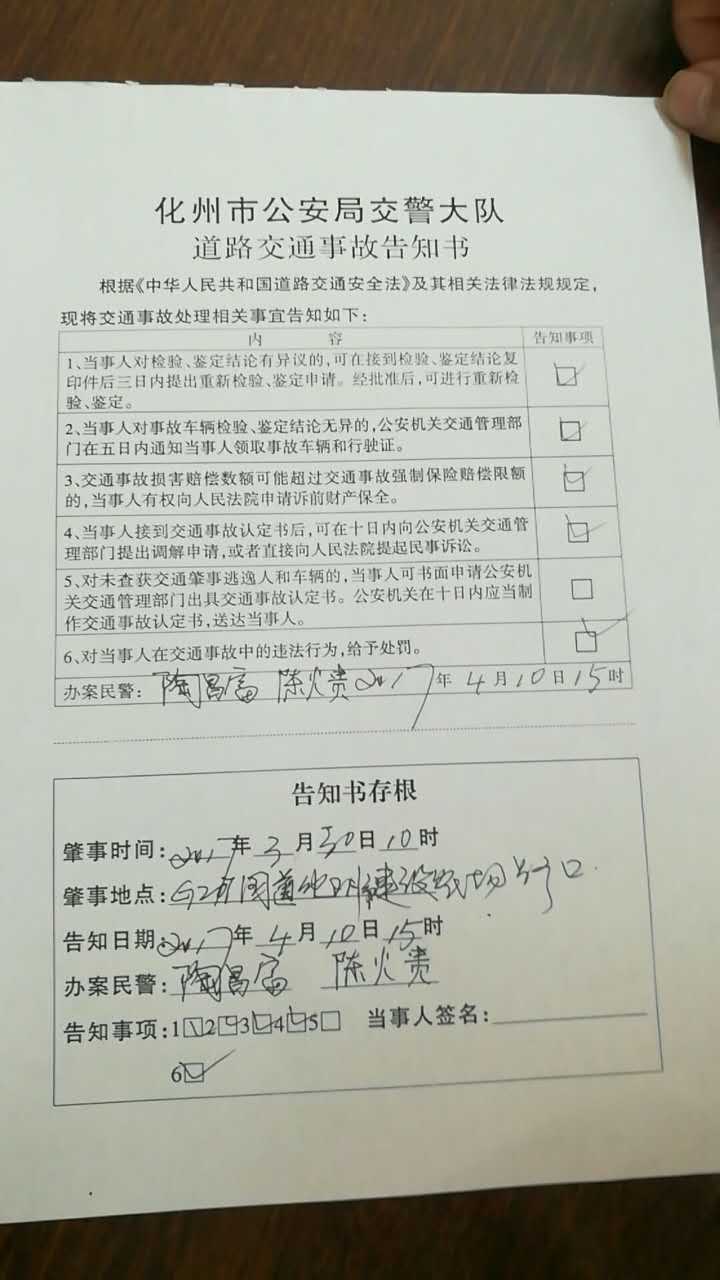 化州市公安局交警大队
道路交通事故告知书
根据《中华人民共和国道路交通安全法》及其相关法律法规规定，
现将交通事故处理相关事宜告知如下：
内 容 告知事项
1、当事人对检验、鉴定结论有异议的，可在接到检验、鉴定结论复
印件后三日内提出重新检验、鉴定申请。经批准后，可进行重新检
验、鉴定。
2、当事人对事故车辆检验、鉴定结论无异的，公安机关交通管理部
门在五日内通知当事人领取事故车辆和行驶证。
3、交通事故损害赔偿数额可能超过交通事故强制保险赔偿限额
的，当事人有权向人民法院申请诉前财产保全。
4、当事人接到交通事故认定书后，可在十日内向公安机关交通管
理部门提出调解申请，或者直接向人民法院提起民事诉讼。
5、对未查获交通肇事逃逸人和车辆的，当事人可书面申请公安机
关交通管理部门出具交通事故认定书。公安机关在十日内应当制
作交通事故认定书，送达当事人。
6、对当事人在交通事故中的违法行为，给予处罚。
办案民警：陶昌富 陈火贵 2017年4月10日15时
告知书存根
肇事时间：2017年3月30日10时
肇事地点：G207国道化州建设农场路口
告知日期：2017年4月10日15时
办案民警：陶昌富 陈火贵
告知事项：1☑2☑3☑4☑5□ 当事人签名：
6☑